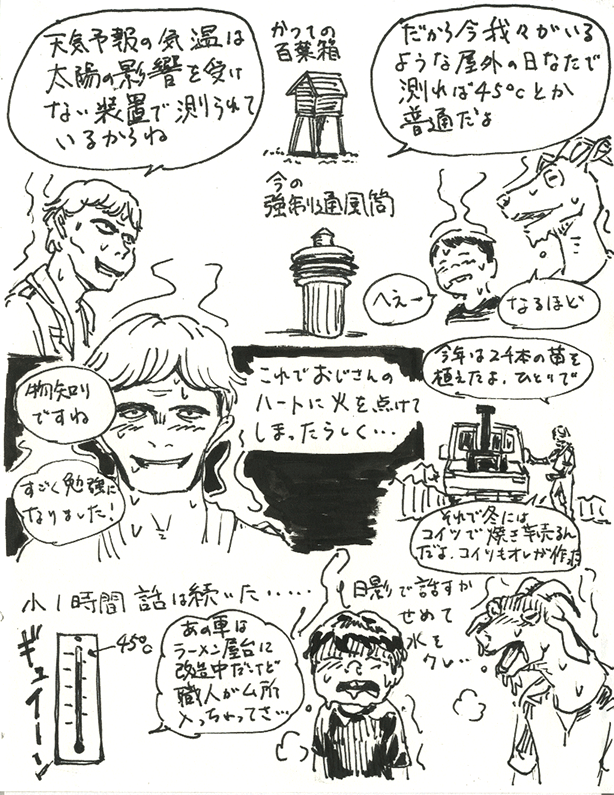 だから今我々がいる
ような屋外の日なたで
測れば45℃とか
普通だよ
かつての
百葉箱
天気予報の気温は
太陽の影響を受け
ない装置で測られて
いるからね
今の
強制通風筒
なるほど
へえー
今年は2千本の苗を
植えたよ.ひとりで
これでおじさんの
ハートに火を点けて
しまったらしく…
物知り
ですね
すごく勉強に
なりました!
それで冬には
コイツで焼き芋売るん
だよ.コイツもオレが作った
小1時間話は続いた……
日影で話すか
せめて
水を
クレ…
あの車は
ラーメン屋台に
改造中だけど
職人がム所
入っちゃってさ…
45℃
ギュイーン